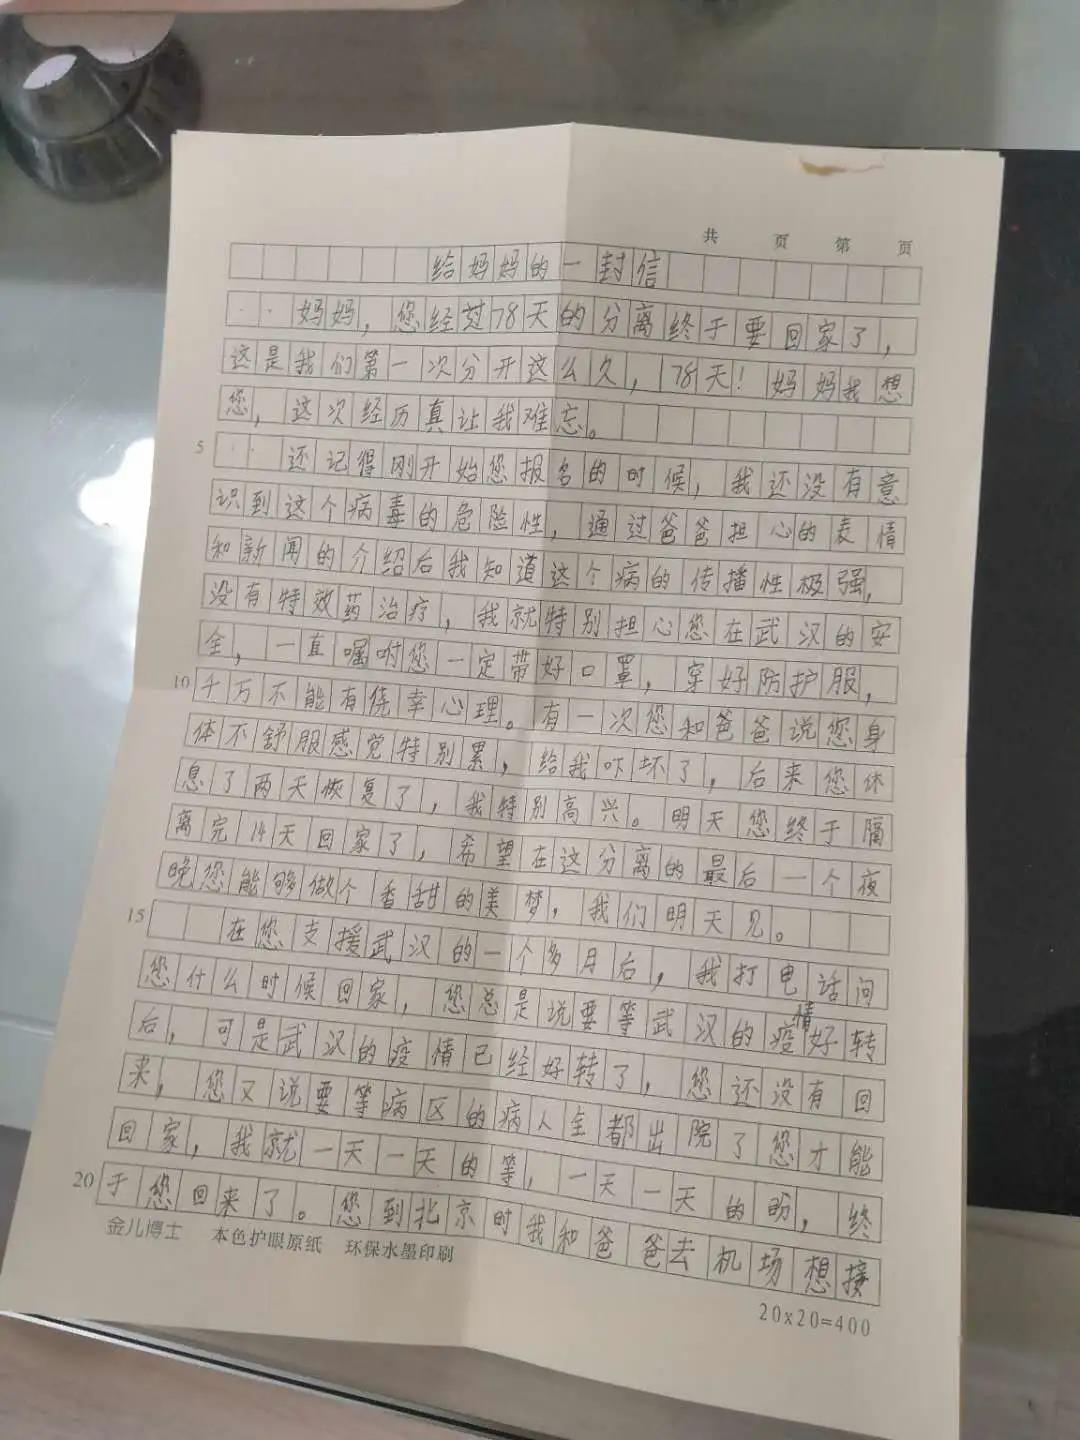 共 页 第 页
给妈妈的一封信
妈妈，您经过78天的分离终于要回家了，
这是我们第一次分开这么久，78天！妈妈我想
您，这次经历真让我难忘。
5 还记得刚开始您报名的时候，我还没有意
识到这个病毒的危险性，通过爸爸担心的表情
和新闻的介绍后我知道这个病的传播性极强，
没有特效药治疗，我就特别担心您在武汉的安
全，一直嘱咐您一定带好口罩，穿好防护服，
10 千万不能有侥幸心理。有一次您和爸爸说您身
体不舒服感觉特别累，给我吓坏了，后来您休
息了两天恢复了，我特别高兴。明天您终于隔
离完14天回家了，希望在这分离的最后一个夜
晚您能够做个香甜的美梦，我们明天见。
15 在您支援武汉的一个多月后，我打电话问
您什么时候回家，您总是说要等武汉的疫情好转
后，可是武汉的疫情已经好转了，您还没有回
来，您又说要等病区的病人全都出院了您才能
回家，我就一天一天的等，一天一天的盼，终
20 于您回来了。您到北京时我和爸爸去机场想接
金儿博士 本色护眼原纸 环保水墨印刷
20x20=400